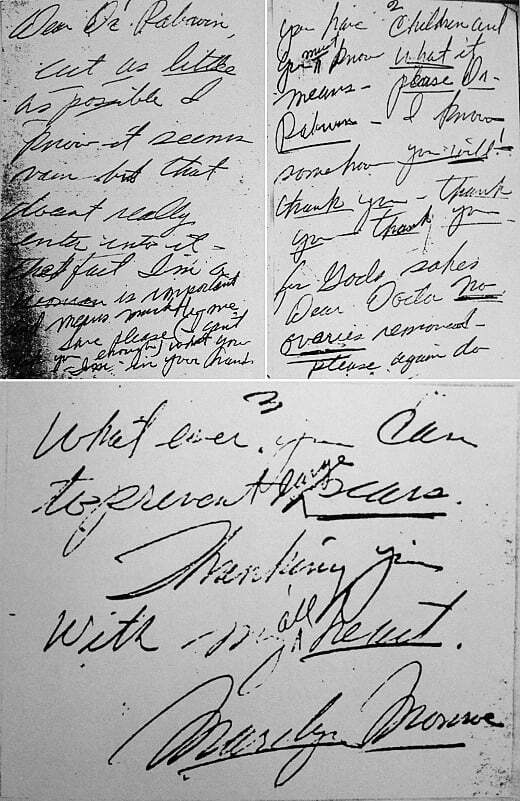 Dear Dr. Rabwin,
cut as little
as possible I
know it seems
vain but that
doesnt really
enter into it -
the fact I'm a
woman is important
means much to me
Save please (I can't
you enough) what you
I'm in your hands
2
you have children and
you must know what it
means - please Dr.
Rabwin - I know
somehow you will!
thank you - thank
you - thank you -
for Gods sakes
Dear Doctor No
ovaries removed -
please again do
3
whatever you can
to prevent large scars.
Thanking you
with all my heart.
Marilyn Monroe